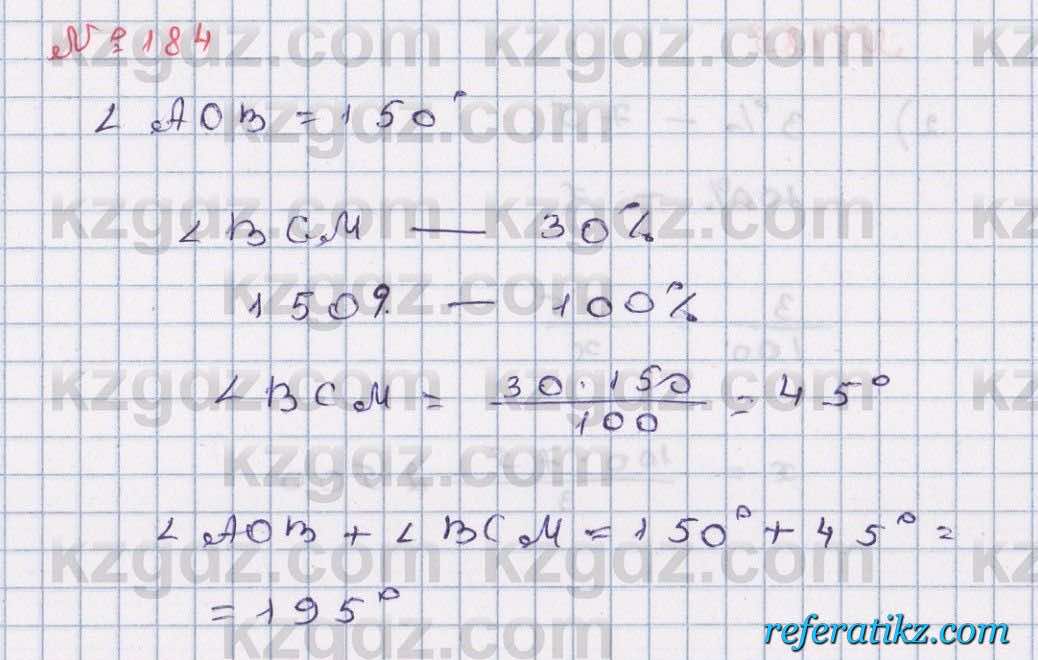 № 184
∠ AOB = 150°
∠ BCM — 30%
150° — 100%
∠ BCM = 30·150/100 = 45°
∠ AOB + ∠ BCM = 150° + 45° =
= 195°
kzgdz.com
referatikz.com